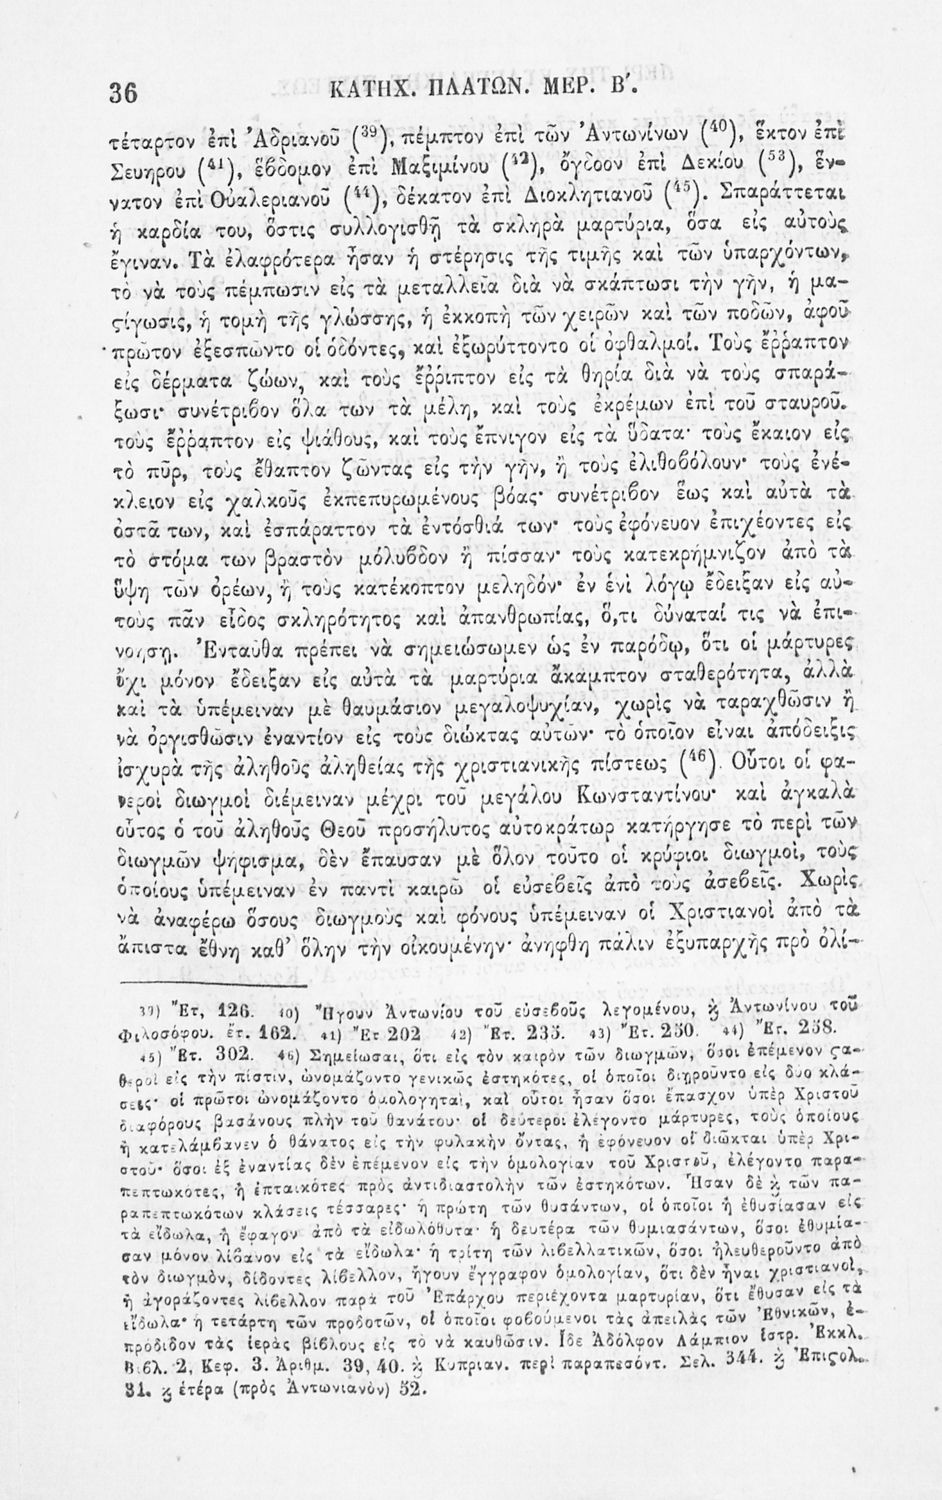 36 ΚΑΤΗΧ. ΠΛΑΤΩΝ. ΜΕΡ. Β΄.
τέταρτον ἐπὶ Ἀδριανοῦ (³⁹), πέμπτον ἐπὶ τῶν Ἀντωνίνων (⁴⁰), ἕκτον ἐπὶ
Σευηρου (⁴¹), ἕβδομον ἐπὶ Μαξιμίνου (⁴²), ὄγδοον ἐπὶ Δεκίου (⁵³), ἕν-
νατον ἐπὶ Οὐαλεριανοῦ (⁴⁴), δέκατον ἐπὶ Διοκλητιανοῦ (⁴⁵). Σπαράττεται
ἡ καρδία του, ὅστις συλλογισθῇ τὰ σκληρὰ μαρτύρια, ὅσα εἰς αὐτοὺς
ἔγιναν. Τὰ ἐλαφρότερα ἦσαν ἡ στέρησις τῆς τιμῆς καὶ τῶν ὑπαρχόντων,
τὸ νὰ τοὺς πέμπωσιν εἰς τὰ μεταλλεῖα διὰ νὰ σκάπτωσι τὴν γῆν, ἡ μα-
ϛίγωσις, ἡ τομὴ τῆς γλώσσης, ἡ ἐκκοπὴ τῶν χειρῶν καὶ τῶν ποδῶν, ἀφοῦ
πρῶτον ἐξεσπῶντο οἱ ὀδόντες, καὶ ἐξωρύττοντο οἱ ὀφθαλμοί. Τοὺς ἔῤῥαπτον
εἰς δέρματα ζώων, καὶ τοὺς ἔῤῥιπτον εἰς τὰ θηρία διὰ νὰ τοὺς σπαρά-
ξωσι· συνέτριβον ὅλα των τὰ μέλη, καὶ τοὺς ἐκρέμων ἐπὶ τοῦ σταυροῦ.
τοὺς ἔῤῥαπτον εἰς ψιάθους, καὶ τοὺς ἔπνιγον εἰς τὰ ὕδατα· τοὺς ἔκαιον εἰς
τὸ πῦρ, τοὺς ἔθαπτον ζῶντας εἰς τὴν γῆν, ἢ τοὺς ἐλιθοβόλουν· τοὺς ἐνέ-
κλειον εἰς χαλκοῦς ἐκπεπυρωμένους βόας· συνέτριβον ἕως καὶ αὐτὰ τὰ
ὀστᾶ των, καὶ ἐσπάραττον τὰ ἐντόσθιά των· τοὺς ἐφόνευον ἐπιχέοντες εἰς
τὸ στόμα των βραστὸν μόλυβδον ἢ πίσσαν· τοὺς κατεκρήμνιζον ἀπὸ τὰ
ὕψη τῶν ὀρέων, ἢ τοὺς κατέκοπτον μεληδόν· ἐν ἑνὶ λόγῳ ἔδειξαν εἰς αὐ-
τοὺς πᾶν εἶδος σκληρότητος καὶ ἀπανθρωπίας, ὅ,τι δύναταί τις νὰ ἐπι-
νοήσῃ. Ἐνταῦθα πρέπει νὰ σημειώσωμεν ὡς ἐν παρόδῳ, ὅτι οἱ μάρτυρες
ὄχι μόνον ἔδειξαν εἰς αὐτὰ τὰ μαρτύρια ἄκαμπτον σταθερότητα, ἀλλὰ
καὶ τὰ ὑπέμειναν μὲ θαυμάσιον μεγαλοψυχίαν, χωρὶς νὰ ταραχθῶσιν ἢ
νὰ ὀργισθῶσιν ἐναντίον εἰς τοὺς διώκτας αὐτων· τὸ ὁποῖον εἶναι ἀπόδειξις
ἰσχυρὰ τῆς ἀληθοῦς ἀληθείας τῆς χριστιανικῆς πίστεως (⁴⁶). Οὗτοι οἱ φα-
νεροὶ διωγμοὶ διέμειναν μέχρι τοῦ μεγάλου Κωνσταντίνου· καὶ ἀγκαλὰ
οὗτος ὁ τοῦ ἀληθοῦς Θεοῦ προσήλυτος αὐτοκράτωρ κατήργησε τὸ περὶ τῶν
διωγμῶν ψήφισμα, δὲν ἔπαυσαν μὲ ὅλον τοῦτο οἱ κρύφιοι διωγμοὶ, τοὺς
ὁποίους ὑπέμειναν ἐν παντὶ καιρῶ οἱ εὐσεβεῖς ἀπὸ τοὺς ἀσεβεῖς. Χωρὶς
νὰ ἀναφέρω ὅσους διωγμοὺς καὶ φόνους ὑπέμειναν οἱ Χριστιανοὶ ἀπὸ τὰ
ἄπιστα ἔθνη καθ᾽ ὅλην τὴν οἰκουμένην· ἀνηφθη πάλιν ἐξυπαρχῆς πρὸ ὀλί-
39) Ἔτ, 126. 40) Ἤγουν Ἀντωνίου τοῦ εὐσεβοῦς λεγομένου, ϗ Ἀντωνίνου τοῦ
Φιλοσόφου. ἔτ. 162. 41) Ἔτ 202 42) Ἔτ. 235. 43) Ἔτ. 250. 44) Ἔτ. 258.
45) Ἔτ. 302. 46) Σημείωσαι, ὅτι εἰς τὸν καιρὸν τῶν διωγμῶν, ὅσοι ἐπέμενον ϛα-
θεροὶ εἰς τὴν πίστιν, ὠνομάζοντο γενικῶς ἑστηκότες, οἱ ὁποῖοι διῃροῦντο εἰς δυο κλά-
σεις· οἱ πρῶτοι ὠνομάζοντο ὁμολογηταὶ, καὶ οὗτοι ἦσαν ὅσοι ἔπασχον ὑπὲρ Χριστοῦ
διαφόρους βασάνους πλὴν τοῦ θανάτου· οἱ δεύτεροι ἐλέγοντο μάρτυρες, τοὺς ὁποίους
ἢ κατελάμβανεν ὁ θάνατος εἰς τὴν φυλακὴν ὄντας, ἢ ἐφόνευον οἱ διῶκται ὑπὲρ Χρι-
στοῦ· ὅσοι ἐξ ἐναντίας δὲν ἐπέμενον εἰς τὴν ὁμολογίαν τοῦ Χριστοῦ, ἐλέγοντο παρα-
πεπτωκοτες, ἢ ἐπταικότες πρὸς ἀντιδιαστολὴν τῶν ἑστηκότων. Ἦσαν δὲ ϗ τῶν πα-
ραπεπτωκότων κλάσεις τέσσαρες· ἡ πρώτη τῶν θυσάντων, οἱ ὁποῖοι ἢ ἐθυσίασαν εἰς
τὰ εἴδωλα, ἢ ἔφαγον ἀπὸ τὰ εἰδωλόθυτα· ἡ δευτέρα τῶν θυμιασάντων, ὅσοι ἐθυμία-
σαν μόνον λίβανον εἰς τὰ εἴδωλα· ἡ τρίτη τῶν λιβελλατικῶν, ὅσοι ἠλευθεροῦντο ἀπὸ
τὸν διωγμὸν, δίδοντες λίβελλον, ἤγουν ἔγγραφον ὁμολογίαν, ὅτι δὲν ἦναι χριστιανοὶ,
ἢ ἀγοράζοντες λίβελλον παρὰ τοῦ Ἐπάρχου περιέχοντα μαρτυρίαν, ὅτι ἔθυσαν εἰς τὰ
εἴδωλα· ἡ τετάρτη τῶν προδοτῶν, οἱ ὁποῖοι φοβούμενοι τὰς ἀπειλὰς τῶν Ἐθνικῶν, ἐ-
πρόδιδον τὰς ἱερὰς βίβλους εἰς τὸ νὰ καυθῶσιν. Ἴδε Ἀδόλφον Λάμπιον ἱστρ. Ἐκκλ.
Βιβλ. 2, Κεφ. 3. Ἀριθμ. 39, 40. ϗ Κυπριαν. περὶ παραπεσόντ. Σελ. 344. ϗ Ἐπιϛολ.
31. ϗ ἑτέρα (πρὸς Ἀντωνιανὸν) 52.